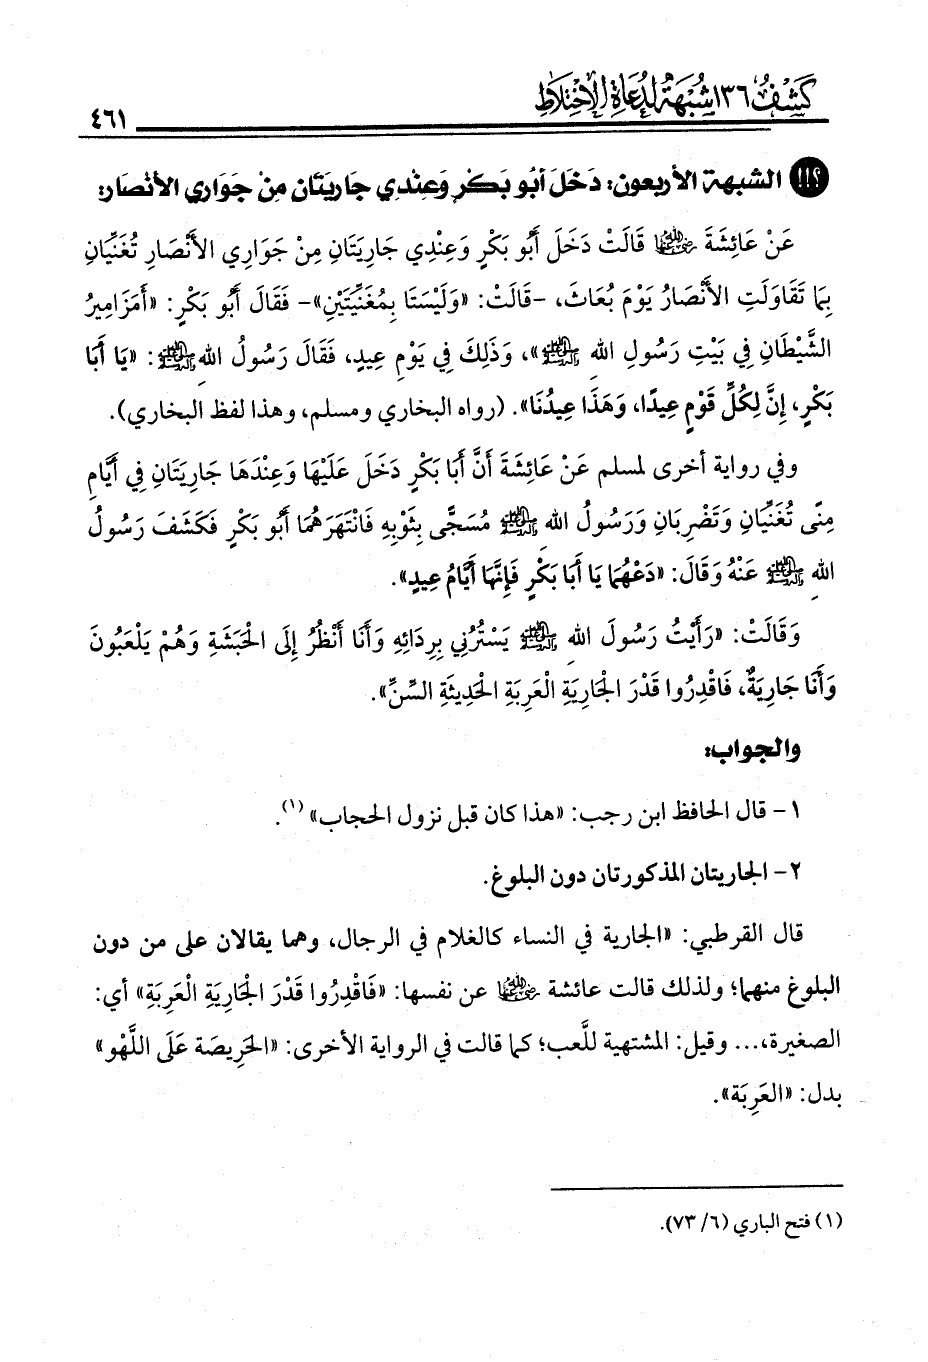 كشف ١٣٦ شبهة لدعاة الاختلاط
٤٦١
؟!! الشبهة الأربعون: دَخَلَ أبُو بَكْرٍ وَعِنْدِي جَارِيَتَان مِنْ جَوَارِي الأنْصَار:
عَنْ عَائِشَةَ رضي الله عنها قَالَتْ دَخَلَ أَبُو بَكْرٍ وَعِنْدِي جَارِيَتَانِ مِنْ جَوَارِي الأَنْصَارِ تُغَنِّيَانِ
بِمَا تَقَاوَلَتِ الأَنْصَارُ يَوْمَ بُعَاثَ، -قَالَتْ: «وَلَيْسَتَا بِمُغَنِّيَتَيْنِ»- فَقَالَ أَبُو بَكْرٍ: «أَمَزَامِيرُ
الشَّيْطَانِ فِي بَيْتِ رَسُولِ اللهِ ﷺ»، وَذَلِكَ فِي يَوْمِ عِيدٍ، فَقَالَ رَسُولُ اللهِ ﷺ: «يَا أَبَا
بَكْرٍ، إِنَّ لِكُلِّ قَوْمٍ عِيدًا، وَهَذَا عِيدُنَا». (رواه البخاري ومسلم، وهذا لفظ البخاري).
وفي رواية أخرى لمسلم عَنْ عَائِشَةَ أَنَّ أَبَا بَكْرٍ دَخَلَ عَلَيْهَا وَعِنْدَهَا جَارِيَتَانِ فِي أَيَّامِ
مِنًى تُغَنِّيَانِ وَتَضْرِبَانِ وَرَسُولُ اللهِ ﷺ مُسَجًّى بِثَوْبِهِ فَانْتَهَرَهُمَا أَبُو بَكْرٍ فَكَشَفَ رَسُولُ
اللهِ ﷺ عَنْهُ وَقَالَ: «دَعْهُمَا يَا أَبَا بَكْرٍ فَإِنَّهَا أَيَّامُ عِيدٍ».
وَقَالَتْ: «رَأَيْتُ رَسُولَ اللهِ ﷺ يَسْتُرُنِي بِرِدَائِهِ وَأَنَا أَنْظُرُ إِلَى الْحَبَشَةِ وَهُمْ يَلْعَبُونَ
وَأَنَا جَارِيَةٌ، فَاقْدِرُوا قَدْرَ الْجَارِيَةِ الْعَرِبَةِ الْحَدِيثَةِ السِّنِّ».
والجواب:
١- قال الحافظ ابن رجب: «هذا كان قبل نزول الحجاب» (١).
٢- الجاريتان المذكورتان دون البلوغ.
قال القرطبي: «الجارية في النساء كالغلام في الرجال، وهما يقالان على من دون
البلوغ منهما؛ ولذلك قالت عائشة رضي الله عنها عن نفسها: «فَاقْدِرُوا قَدْرَ الْجَارِيَةِ الْعَرِبَةِ» أي:
الصغيرة،... وقيل: المشتهية للَّعب؛ كما قالت في الرواية الأخرى: «الحَرِيصَة عَلَى اللَّهْو»
بدل: «العَرِبَة».
(١) فتح الباري (٦/ ٧٣).